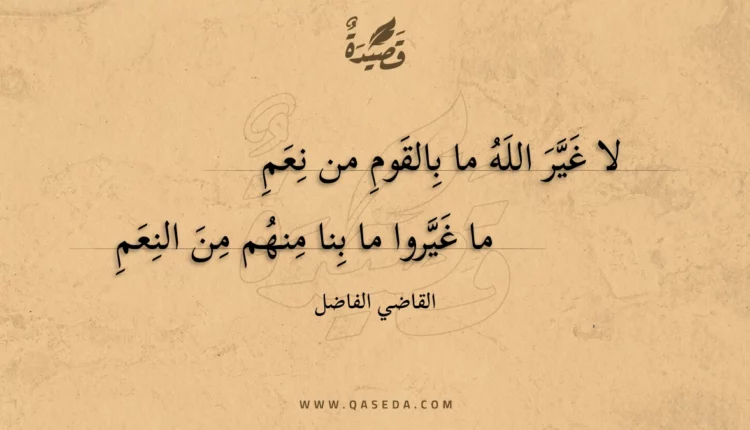 قَصِيدَةٌ
لا غَيَّرَ اللَهُ ما بِالقَومِ من نِعَمِ
ما غَيَّروا ما بِنا مِنهُم مِنَ النِعَمِ
القاضي الفاضل
WWW.QASEDA.COM